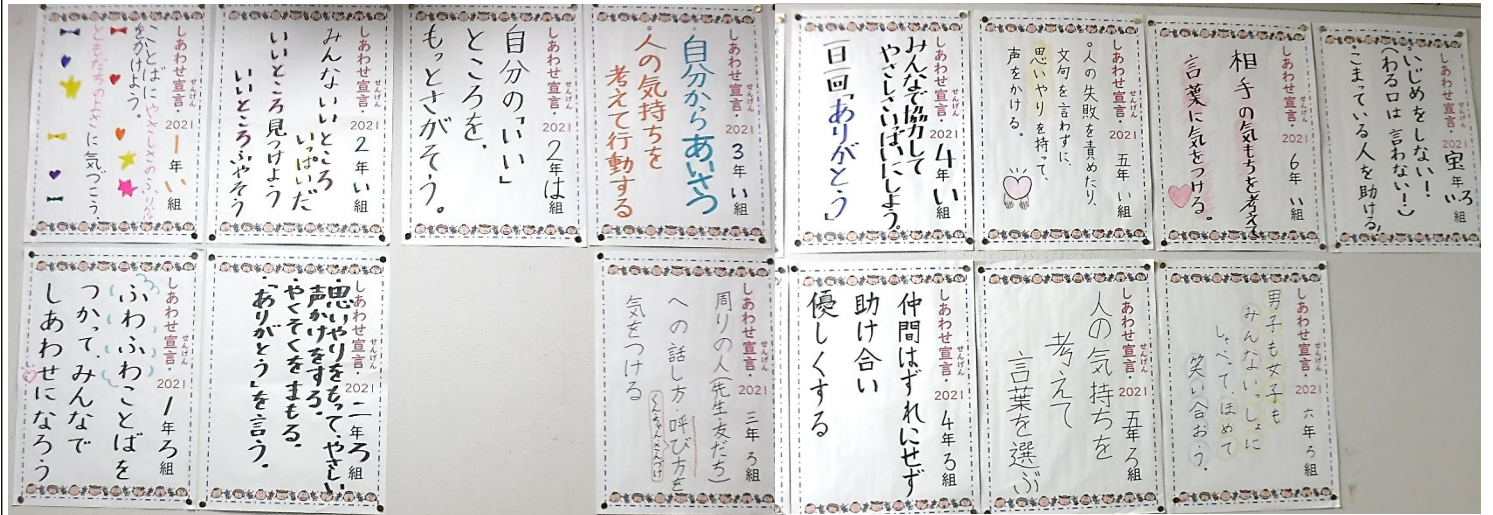 しあわせ宣言・2021 1年い組
ことばにやさしさのふりかけ
をかけよう。
ともだちのよさに気づこう。
しあわせ宣言・2021 2年い組
みんないいところ
いっぱいだ
いいところ見つけよう
いいところふやそう
しあわせ宣言・2021 2年は組
自分の「いい」
ところを、
もっとさがそう。
しあわせ宣言・2021 3年い組
自分からあいさつ
・人の気持ちを
考えて行動する
しあわせ宣言・2021 4年い組
みんなで協力して
やさしさいっぱいにしよう。
一日一回「ありがとう」
しあわせ宣言・2021 五年い組
・人の失敗を責めたり、
文句を言わずに、
思いやりを持って、
声をかける。
しあわせ宣言・2021 6年い組
相手の気もちを考えて
言葉に気をつける。
しあわせ宣言・2021 宝年ろい組
・いじめをしない!
(わる口は言わない!)
・こまっている人を助ける
しあわせ宣言・2021 1年ろ組
ふわふわことばを
つかって、みんなで
しあわせになろう
しあわせ宣言・2021 二年ろ組
・思いやりをもって、やさしい
声かけをする。
・やくそくをまもる。
・「ありがとう」を言う。
しあわせ宣言・2021 三年ろ組
周りの人(先生・友だち)
への話し方・呼び方を
くん、ちゃん、さんづけ
気をつける
しあわせ宣言・2021 4年ろ組
仲間はずれにせず
助け合い
優しくする
しあわせ宣言・2021 五年ろ組
人の気持ちを
考えて
言葉を選ぶ
しあわせ宣言・2021 六年ろ組
男子も女子も
みんないっしょに
しゃべって、ほめて
笑い合おう。